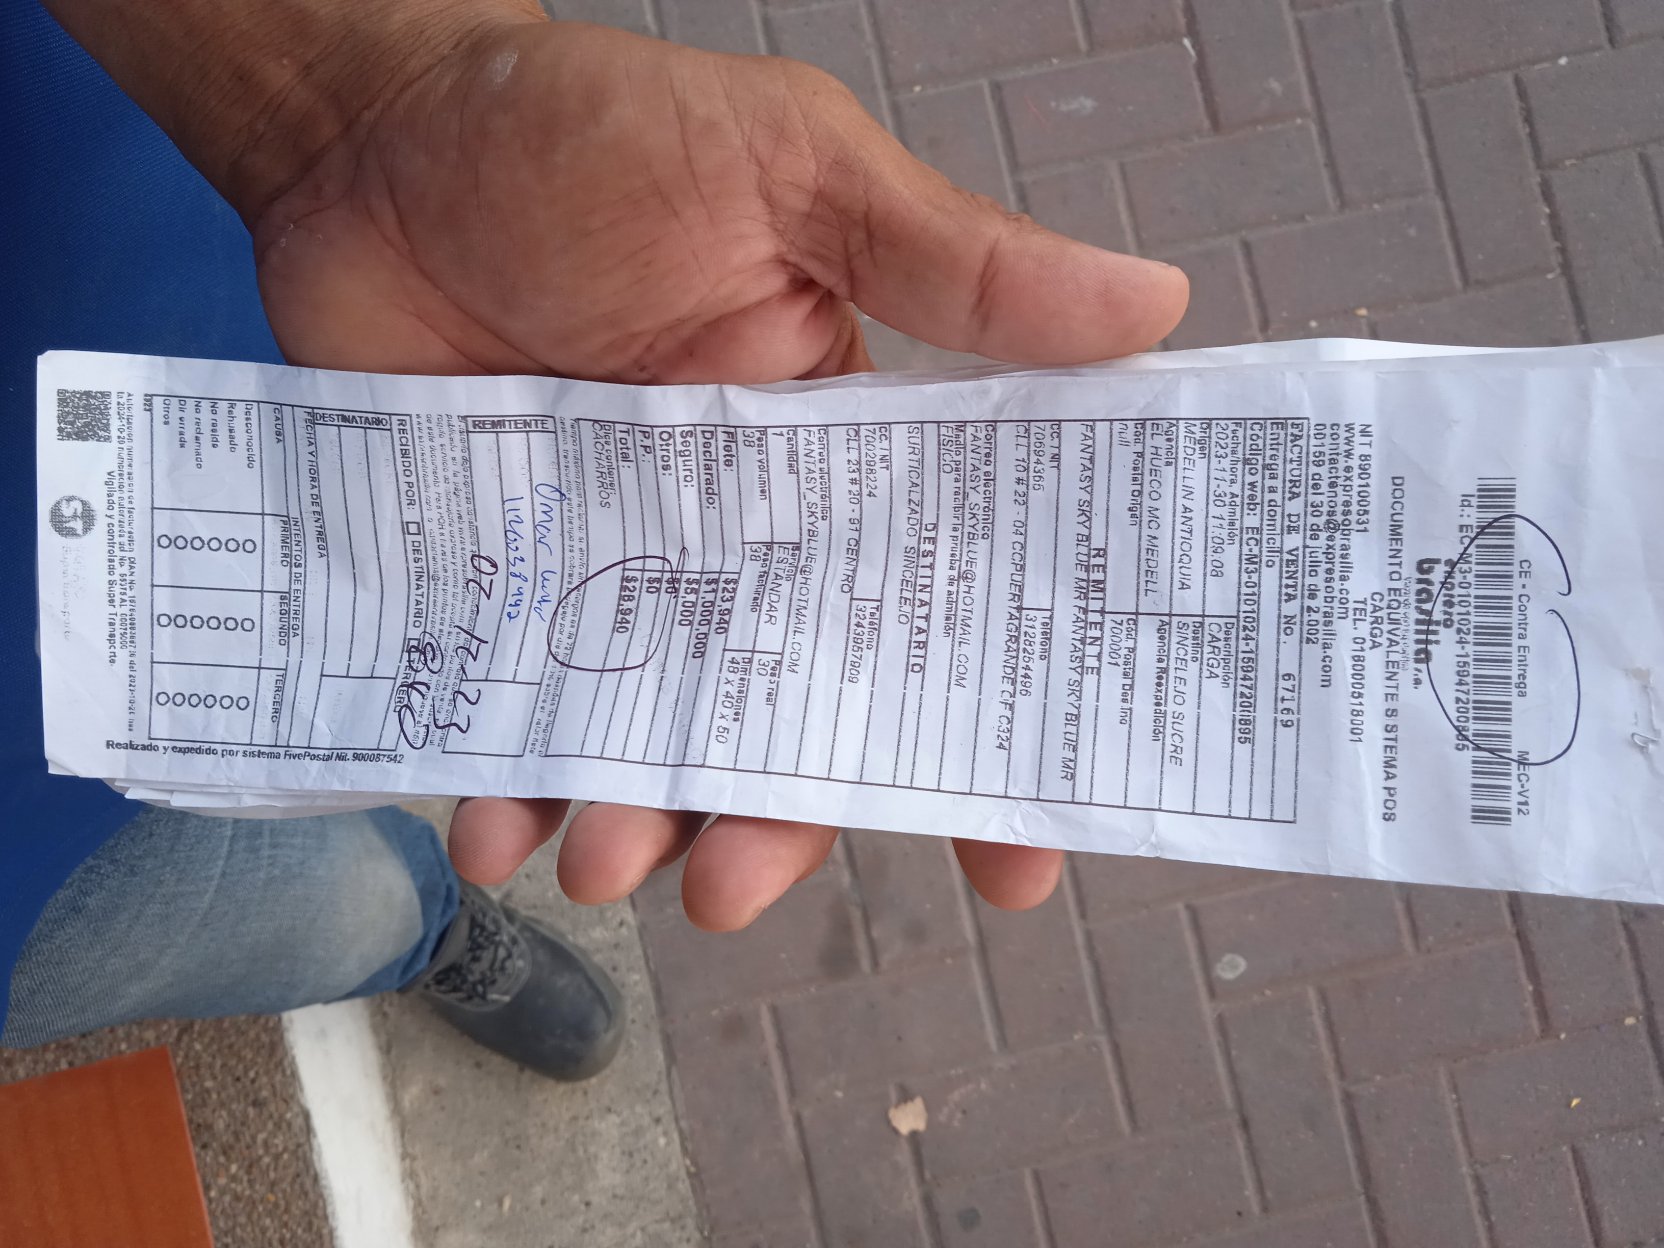 CE - Contra Entrega MEC-V12
Id.: EC-M3-0101024-15947200895
expreso
brasilia s.a.
DOCUMENTO EQUIVALENTE SISTEMA POS
CARGA
NIT 890100531 TEL. 018000518001
www.expresobrasilia.com
contactenos@expresobrasilia.com
00159 del 30 de julio de 2.002
FACTURA DE VENTA No. 67169
Código web: EC-M3-0101024-15947201895
Entrega a domicilio
Fecha/hora, Admisión Descripción
2023-11-30 11:09:08 CARGA
Origen Destino
MEDELLIN ANTIOQUIA SINCELEJO SUCRE
Agencia Agencia Reexpedición
EL HUECO NC MEDELL
Cód. Postal Origen Cód. Postal Destino
null 700001
REMITENTE
FANTASY SKY BLUE MR FANTASY SKY BLUE MR
CC. NIT Teléfono
70694366 3128254496
CLL 10 # 22 - 04 CCPUERTAGRANDE CF C324
Correo electrónico
FANTASY_SKYBLUE@HOTMAIL.COM
Medio para recibir la prueba de admisión
FISICO
DESTINATARIO
SURTICALZADO SINCELEJO
CC. NIT Teléfono
700298224 3243957809
CLL 23 # 20 - 97 CENTRO
Correo electrónico
FANTASY_SKYBLUE@HOTMAIL.COM
Cantidad Servicio Peso real
1 ESTANDAR 30
Peso volumen Peso facturado Dimensiones
38 38 48 X 40 X 50
Flete: $23,940
Declarado: $1,000,000
Seguro: $5,000
Otros: $0
P.P.: $0
Total: $28,940
Dice contener:
CACHARROS
REMITENTE
Omar
07 12-23
RECIBIDO POR: DESTINATARIO TERCERO
DESTINATARIO
FECHA Y HORA DE ENTREGA
CAUSA INTENTOS DE ENTREGA
PRIMERO SEGUNDO TERCERO
Desconocido
Rehusado
No reside
No reclamado
Dir errada
Otros
Vigilado y controlado Super Transporte.
Realizado y expedido por sistema FivePostal Nit. 900087542